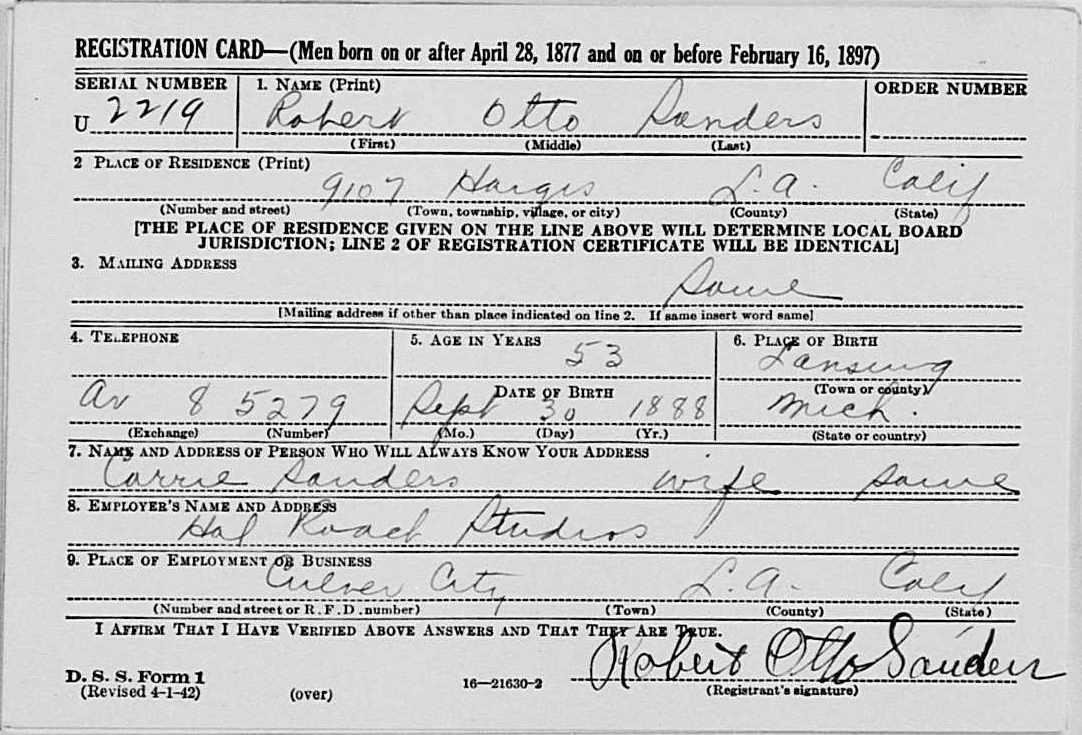 REGISTRATION CARD—(Men born on or after April 28, 1877 and on or before February 16, 1897)
SERIAL NUMBER 1. NAME (Print) ORDER NUMBER
U 2219 Robert Otto Sanders
(First) (Middle) (Last)
2 PLACE OF RESIDENCE (Print)
9107 Hargis L.A. Calif
(Number and street) (Town, township, village, or city) (County) (State)
[THE PLACE OF RESIDENCE GIVEN ON THE LINE ABOVE WILL DETERMINE LOCAL BOARD
JURISDICTION; LINE 2 OF REGISTRATION CERTIFICATE WILL BE IDENTICAL]
3. MAILING ADDRESS
Same
[Mailing address if other than place indicated on line 2. If same insert word same]
4. TELEPHONE 5. AGE IN YEARS 6. PLACE OF BIRTH
53 Lansing
DATE OF BIRTH (Town or county)
Ar 8 5279 Sept 30 1888 Mich.
(Exchange) (Number) (Mo.) (Day) (Yr.) (State or country)
7. NAME AND ADDRESS OF PERSON WHO WILL ALWAYS KNOW YOUR ADDRESS
Carrie Sanders wife same
8. EMPLOYER'S NAME AND ADDRESS
Hal Roach Studios
9. PLACE OF EMPLOYMENT OR BUSINESS
Culver City L.A. Calif
(Number and street or R. F. D. number) (Town) (County) (State)
I AFFIRM THAT I HAVE VERIFIED ABOVE ANSWERS AND THAT THEY ARE TRUE.
Robert Otto Sanders
D. S. S. Form 1
(Revised 4-1-42) (over) 16—21630-2 (Registrant's signature)